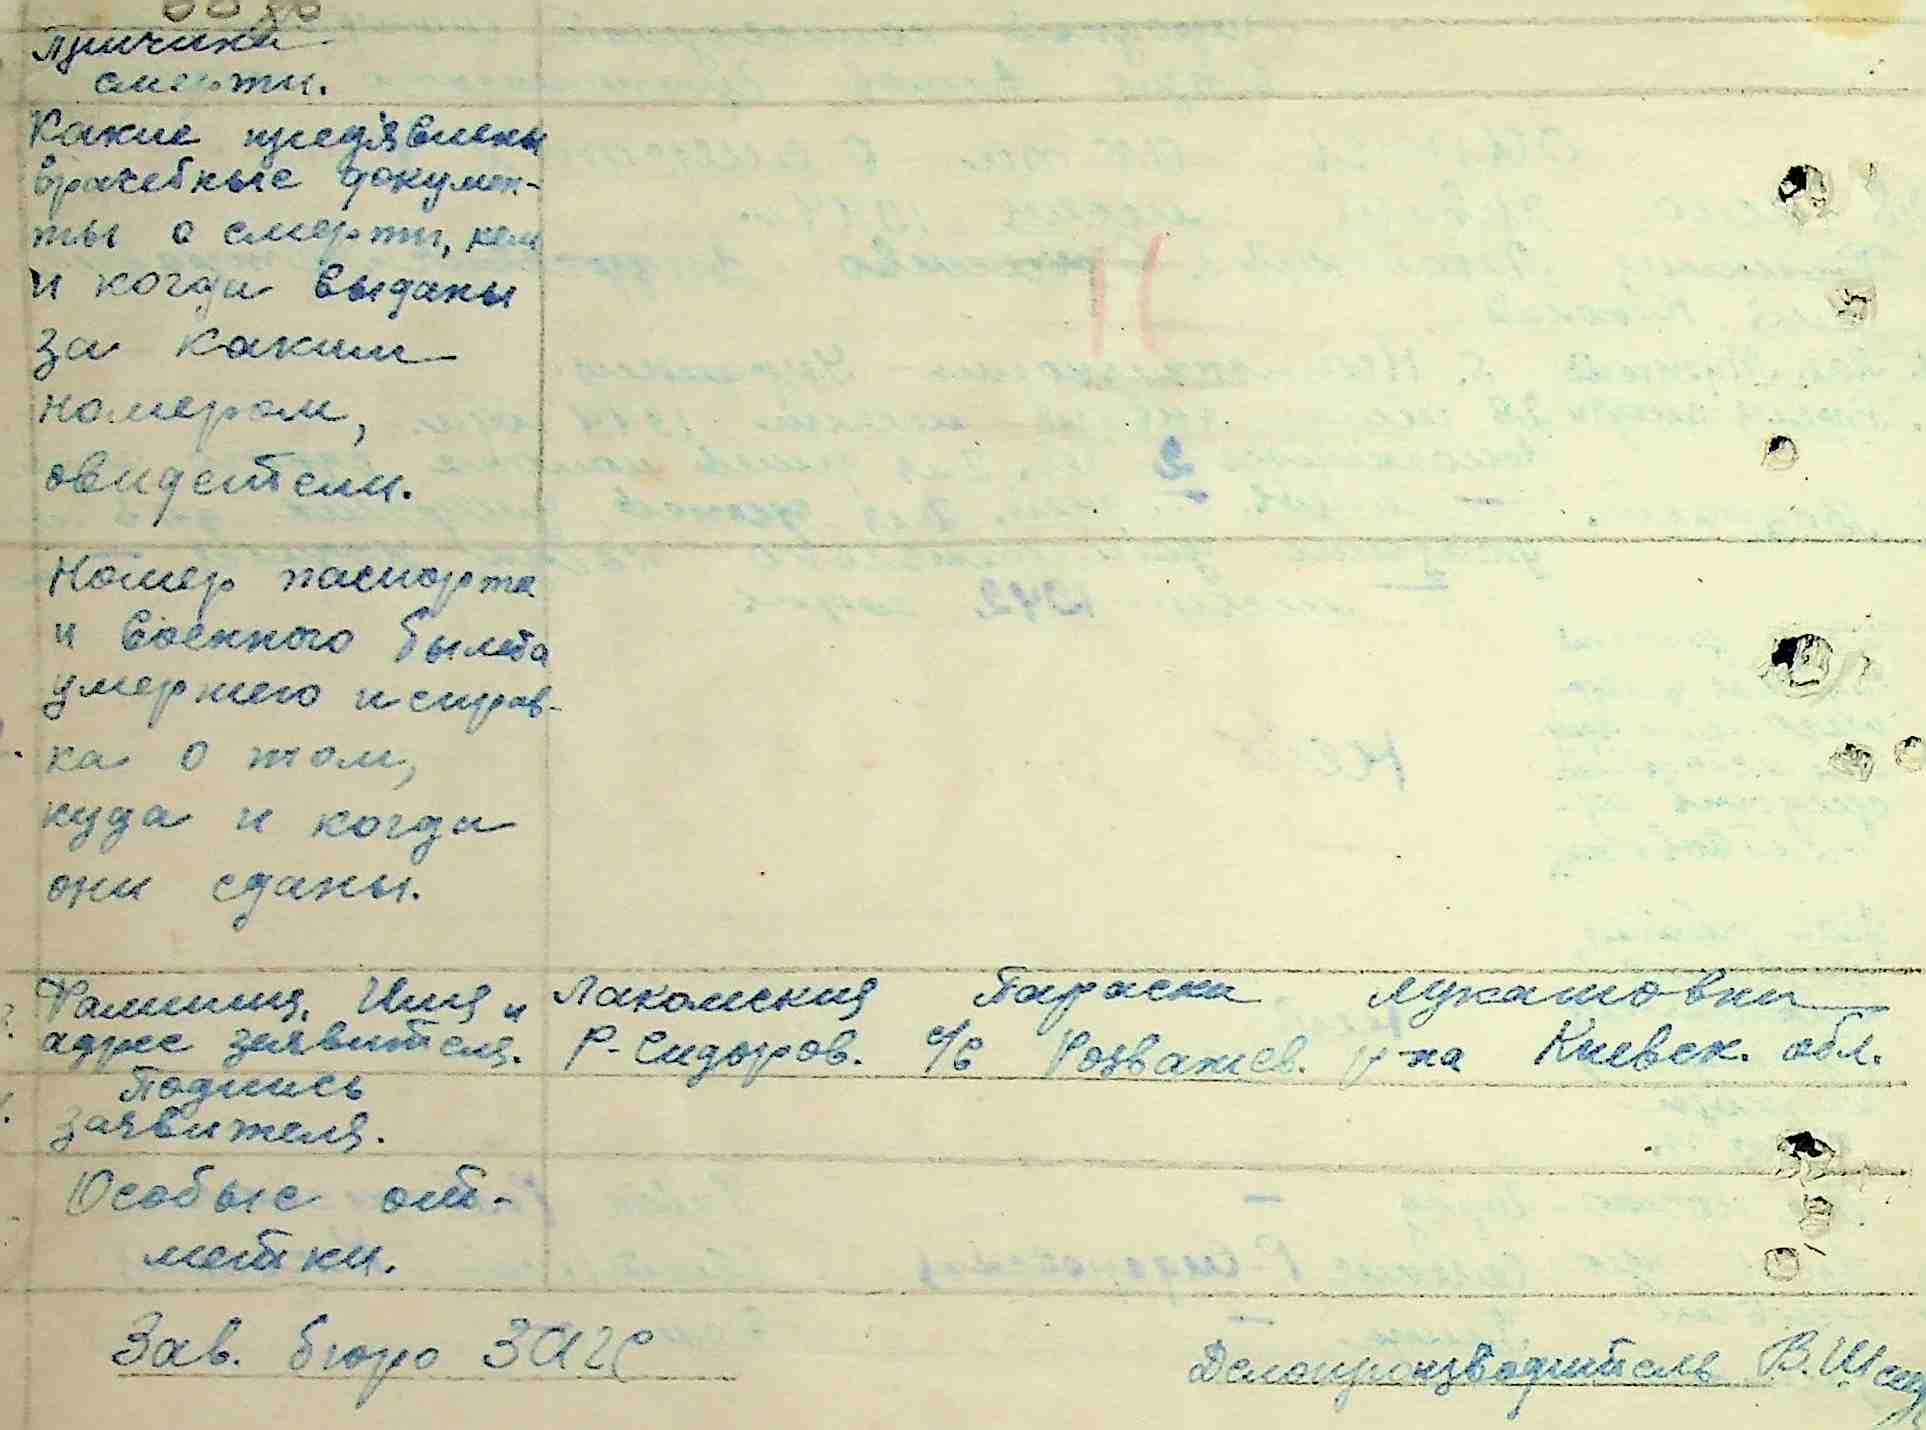 Причина
смерти.
Какие предъявлены
врачебные докумен-
ты о смерти, кем
и когда выданы
за каким
номером,
свидетели.
Номер паспорта
и военного былета
умершего и справ-
ка о том,
куда и когда
они сданы.
Фамилия, Имя и Лакомския Параски Лукашовны
адрес заявителя. Р-Сидоров. с/с Розважев. р-на Киевск. обл.
Подпись
заявителя.
Особые от-
метки.
Зав. бюро ЗАГС
Делопроизводитель В.